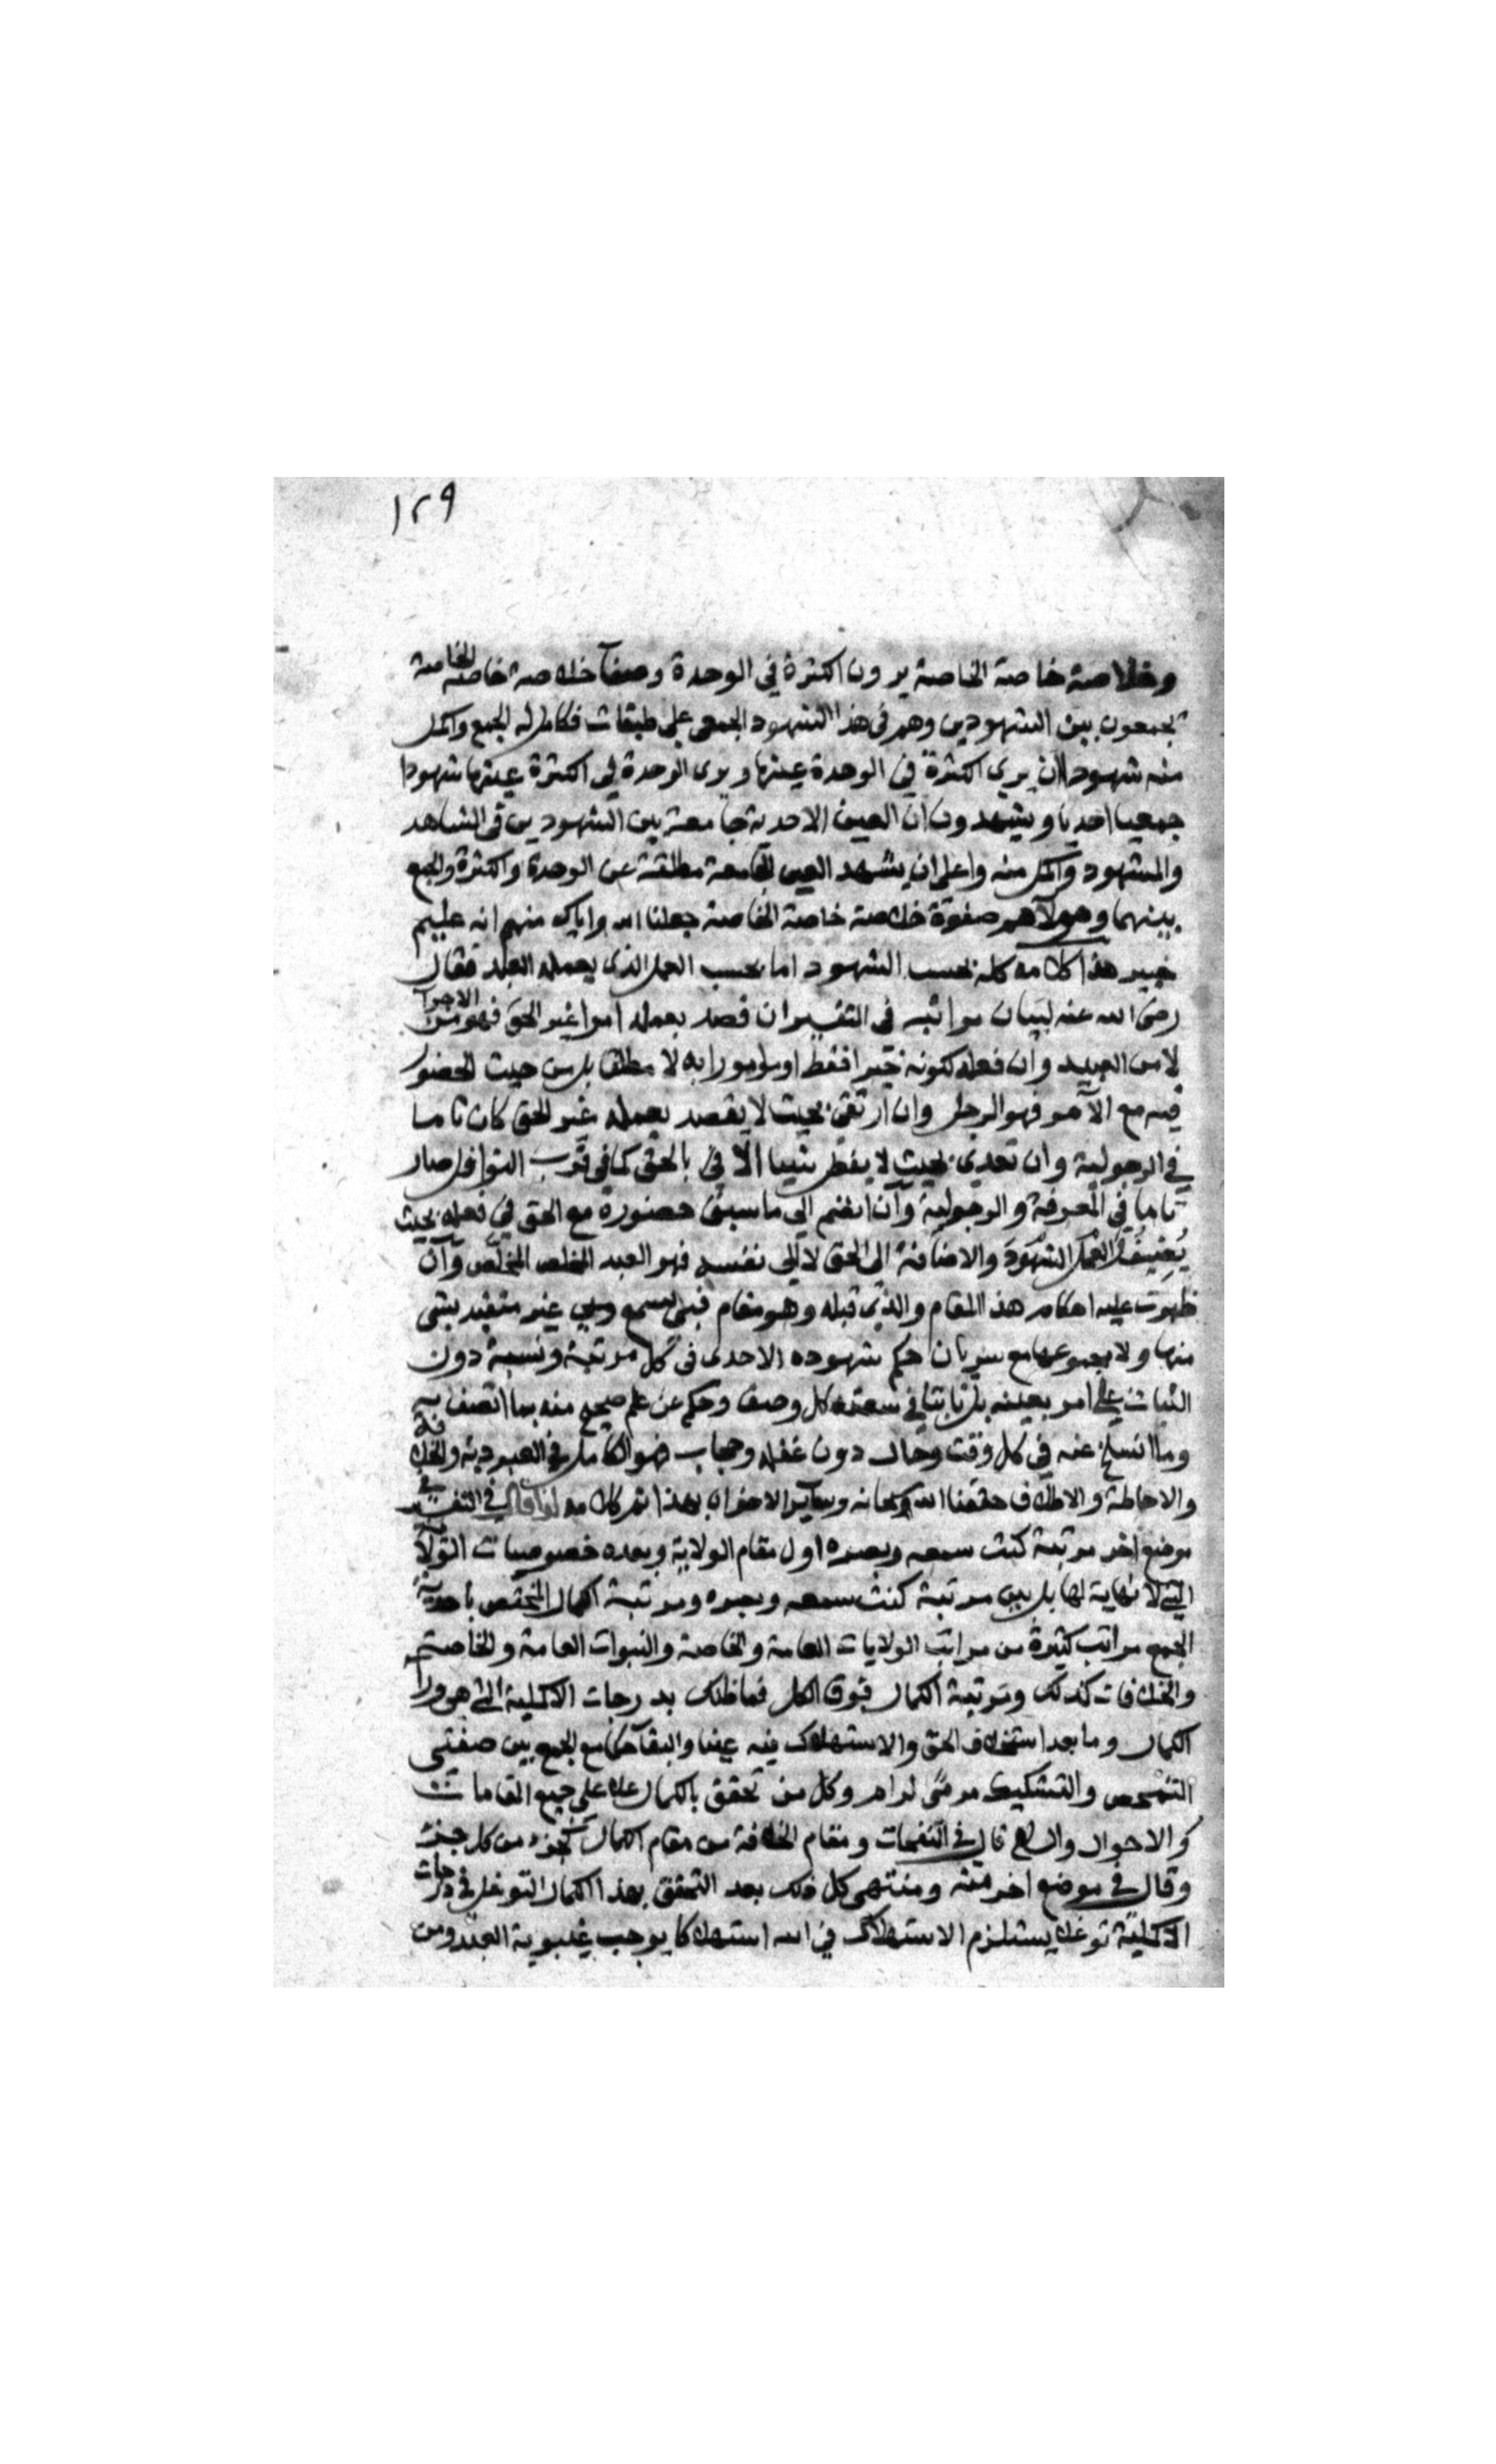 ١٢٩
وخلاصة خاصة الخاصة يرون الكثرة في الوحدة وصفاء خلاصة خاصة الخاصة
يجمعون بين الشهودين وهم في هذا الشهود الجمعي على طبقات فكامل له الجمع واكمل
منه شهودا ان يرى الكثرة في الوحدة عينها ويرى الوحدة في الكثرة عينها شهودا
جمعيا احديا ويشهدون ان العين الاحدية جامعة بين الشهودين في الشاهد
والمشهود واكمل منه واعلى ان يشهد العين الجامعة مطلقة عن الوحدة والكثرة والجمع
بينهما وهولآء هم صفوة خلاصة خاصة الخاصة جعلنا الله واياك منهم انه عليم
خبير هذا كلامه كله بحسب الشهود اما بحسب العمل الذي يعمله العبد فقال
رضى الله عنه لبيان مراتبه في التفسير ان قصد بعمله امرا غير الحق فهو من الاجرآ
لا من العبيد وان فعله لكونه خيرا فقط او مامورا به لا مطلقا بل من حيث الحضور
فيه مع الآمر فهو الرجل وان ارتقى بحيث لا يقصد بعمله غير الحق كان تاما
في الرجولية وان تعدى بحيث لا يفعل شيئا الا بالحق كما في قرب النوافل صار
تاما في المعرفة والرجولية وان انضم الى ما سبق حضوره مع الحق في فعله بحيث
يضيف العمل الشهود والاضافة الى الحق لا الى نفسه فهو العبد المخلص المخلص وان
ظهرت عليه احكام هذا المقام والذي قبله وهو مقام فبي يسمع وبي غير متقيد بشي
منها ولا بمجموعها مع سريان حكم شهوده الاحدى في كل مرتبة ونسبة دون
الثبات على امر بعينه بل ثابتا في سعته كل وصف وحكم عن علم صحيح منه بما اتصف به
وما انسلخ عنه في كل وقت وحال دون غفلة وحجاب فهو الكامل في العبودية والخلافة
والاحاطة والاطلاق حققنا الله سبحانه وساير الاخوان بهذا تم كلامه قال في التفسير في
موضع اخر مرتبة كنت سمعه وبصره اول مقام الولاية وبعده خصوصيات الولاية
التي لا نهاية لها بل بين مرتبة كنت سمعه وبصره ومرتبة الكمال المختص باحدية
الجمع مراتب كثيرة من مراتب الولايات العامة والخاصة والنبوات العامة والخاصة
والخلافات كذلك ومرتبة الكمال فوق الكل فما ظنك بدرجات الاكملية التي هي ورآ
الكمال وما بعد استخلاف الحق والاستهلاك فيه عينا والبقآء حكما مع الجمع بين صفتي
التمحض والتشكيك مرمى لرام وكل من تحقق بالكمال علا على جميع المقامات
والاحوال والسلام قال في النفحات ومقام الخلافة من مقام الكمال كجزء من كل جنة
وقال في موضع اخر منه ومنتهى كل ذلك بعد التحقق بهذا الكمال التوغل في درجات
الاكملية توغلا يستلزم الاستهلاك في الله استهلاكا يوجب غيبوبة العبد ومن